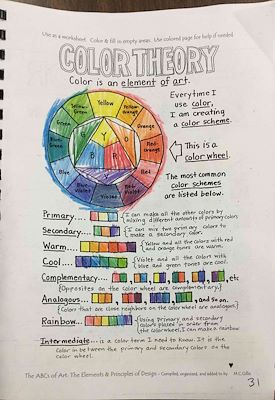 Use as a worksheet. Color & fill in empty areas. Use colored page for help if needed.
COLOR THEORY
Color is an element of art.
Everytime I
use color,
I am creating
a color scheme.
Yellow
Yellow-Orange
Orange
Red-Orange
Red
Red-Violet
Violet
Blue-Violet
Blue
Green
Yellow-Green
Y
O
R
B
This is a
color wheel.
The most common
color schemes
are listed below.
Primary....
{I can make all the other colors by
mixing different amounts of primary colors.
Secondary...
{I can mix two primary colors to
make a secondary color.
Warm....
{Yellow and all the colors with red
and orange tones are warm.
Cool....
{Violet and all the colors with
blue and green tones are cool.
Complementary.... , , , , etc
{Opposites on the color wheel are complementary.}
Analogous.... , , , and so on.
{Colors that are close neighbors on the color wheel are analogous.}
Rainbow...
{Using primary and secondary
colors placed in order from
the color wheel, I can make a rainbow.
Intermediate...is a color term I need to know. It is the
color in between the primary and secondary colors on the
color wheel.
The ABCs of Art: The Elements & Principles of Design - Compiled, organized, and added to by M.C.Gillis
31